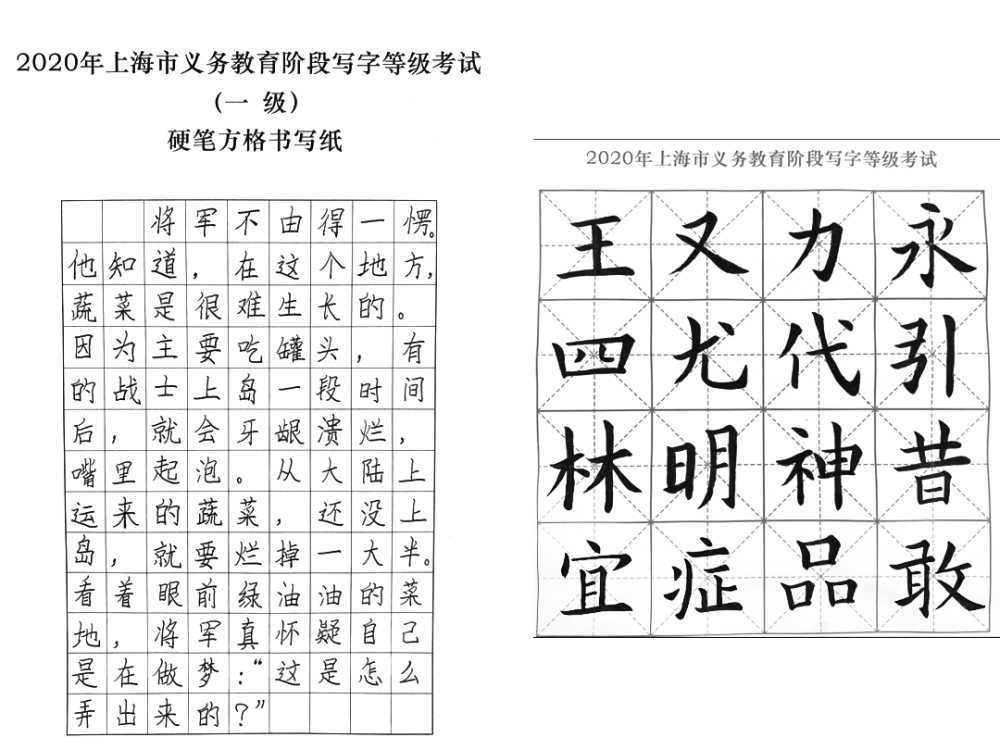 2020年上海市义务教育阶段写字等级考试
（一 级）
硬笔方格书写纸
将军不由得一愣。
他知道，在这个地方，
蔬菜是很难生长的。
因为主要吃罐头，有
的战士上岛一段时间
后，就会牙龈溃烂，
嘴里起泡。从大陆上
运来的蔬菜，还没上
岛，就要烂掉一大半。
看着眼前绿油油的菜
地，将军真怀疑自己
是在做梦：“这是怎么
弄出来的？”
2020年上海市义务教育阶段写字等级考试
王又力永
四尤代引
林明神昔
宜症品敢